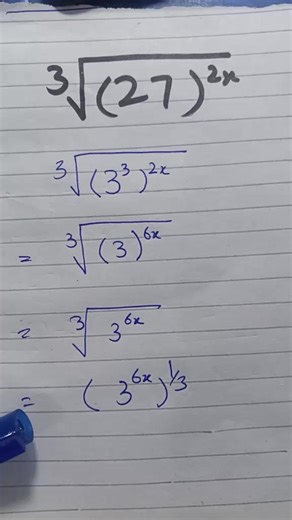 ∛((27)^{2x})
∛((3^3)^{2x})
= ∛((3)^{6x})
= ∛(3^{6x})
= (3^{6x})^{1/3}